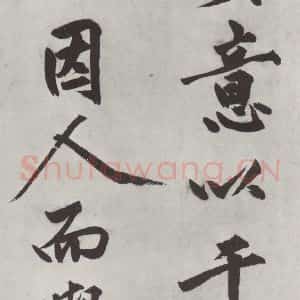 意以干
因人而
Shufawang.CN